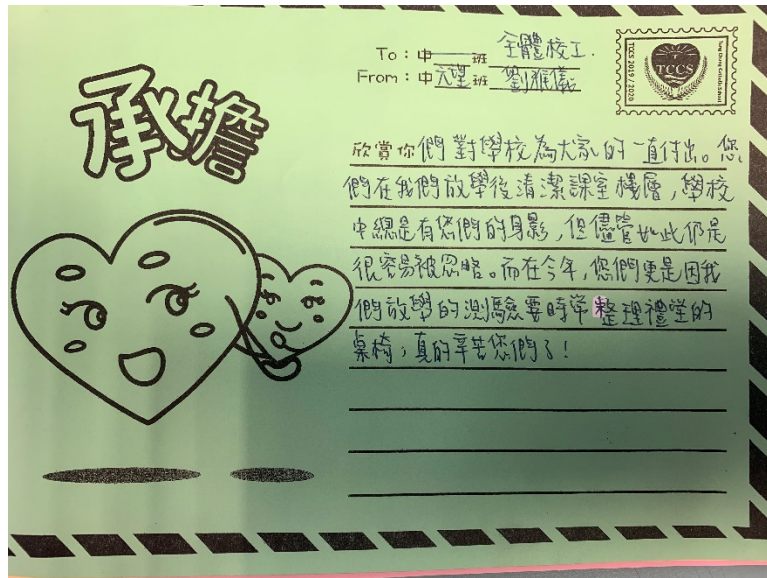 承擔
To：中 班 全體校工.
From：中六望班 劉雅儀
TCCS 2019 / 2020
TCCS
Tung Chung Catholic School
欣賞你們對學校為大家的一直付出。您
們在我們放學後清潔課室樓層，學校
中總是有您們的身影，但儘管如此仍是
很容易被忽略。而在今年，您們更是因我
們放學的測驗要時常整理禮堂的
桌椅，真的辛苦您們了！